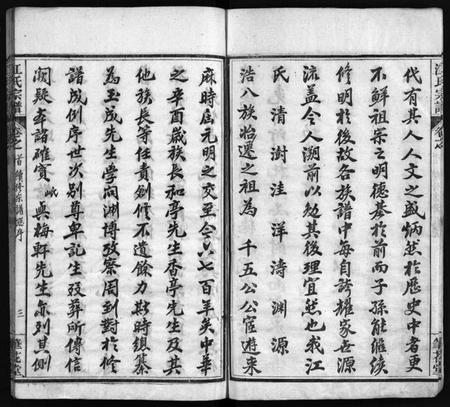 江氏宗譜
筆花堂
代有其人人文之盛炳然於歷史中者更
不鮮祖宗之明德基於前而子孫能繼續
修明於後故各族譜中每自誇耀家世源
流蓋令人溯前以勉其後理宜然也我江
氏清澍洼洋濤渊源
浩八族始遷之祖為千五公公宦遊來
麻時居元明之交至今六七百年矣中華
之辛酉歲族長和亭先生香亭先生及其
他族長等任責創修不遺餘力斯時總纂
為玉成先生學問渊博攷察周到對於修
譜成例序世次別尊卑記生殁葬所傳信
闕疑夲諮確實峨與梅軒先生亦列其側
江氏宗譜
卷之首
續修宗譜總序
三
筆花堂